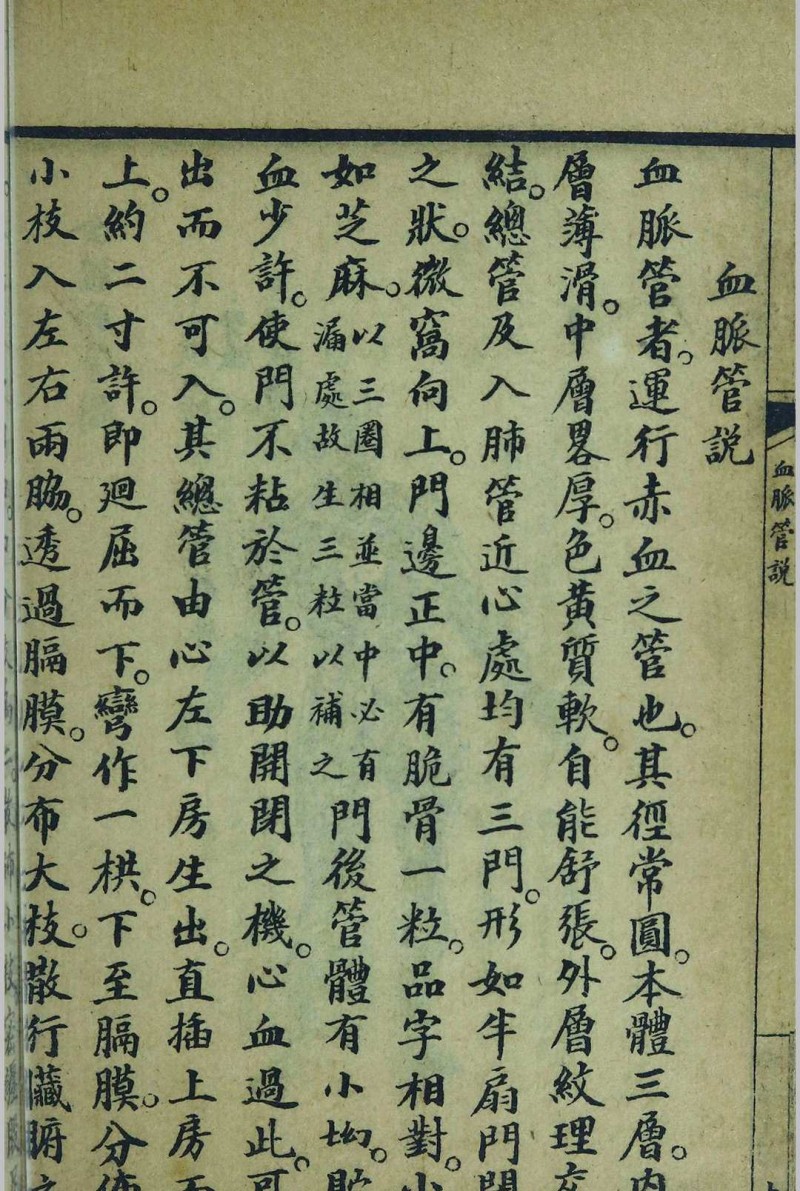 血脈管説
血脈管者。運行赤血之管也。其徑常圓。本體三層。内
層薄滑。中層畧厚。色黃質軟。自能舒張。外層紋理交
結。總管及入肺管近心處均有三門。形如半扇門閉
之狀。微窩向上。門邊正中。有脆骨一粒。品字相對。小
如芝麻。以三圈相並當中必有漏處故生三粒以補之門後管體有小坳。貯
血少許。使門不粘於管。以助開閉之機。心血過此。可
出而不可入。其總管由心左下房生出。直插上房而
上。約二寸許。即廻屈而下。彎作一栱。下至膈膜。分
小枝入左右兩脇。透過膈膜。分布大枝。散行臟腑之
血脈管説